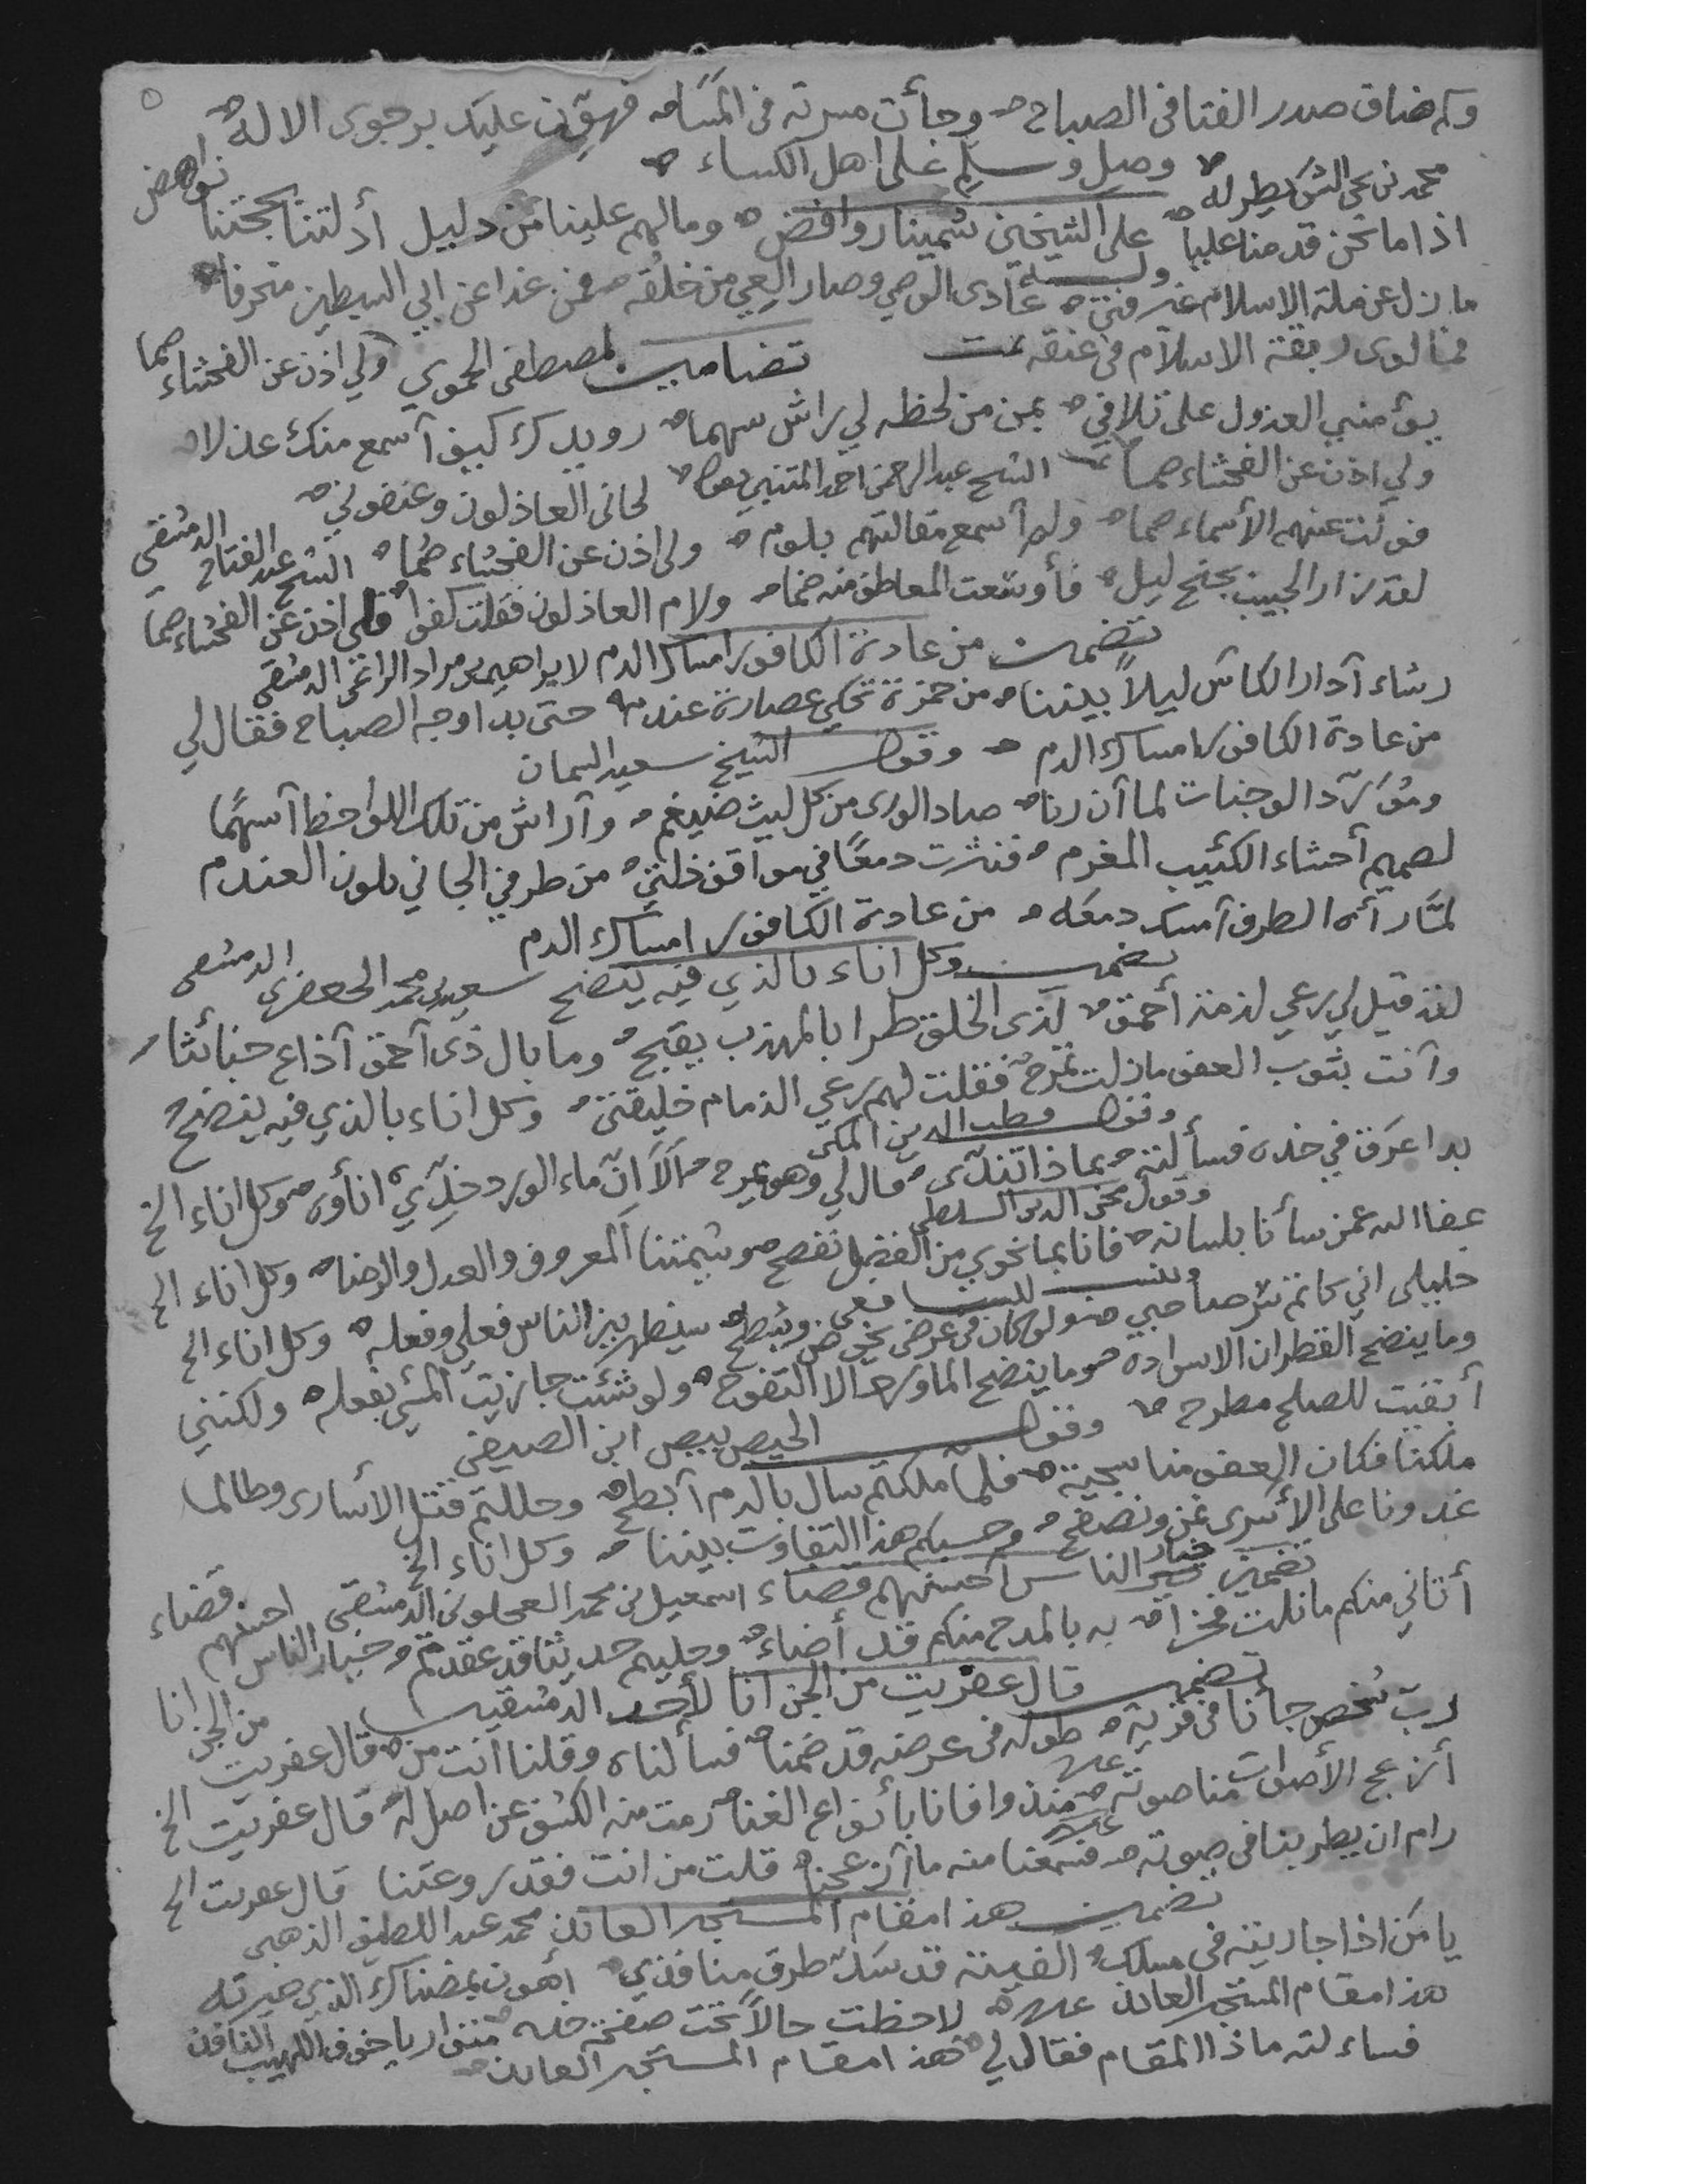 وكم ضاق صدر الفتا فى الصباح وجأت مسرته فى المسا فهون عليك برجوى الاله
وصل وسلم على اهل الكساء
اذا ما نحن قدمنا عليا على الشيخين سمينا روافض وما لهم علينا من دليل أدلتنا بحجتنا نواهض
ما زل عن ملة الاسلام غير فتى عادى الوصي وصار العي من خلقه فمن غدا عن ابي السبطين منحرفا
فما لوى ربقة الاسلام فى عنقه تمت تضامين لمصطفى الحموي ولي اذن عن الفحشاء صما
يؤمنبي العذول على تلافي بمن من لحظه لي راش سهما رويدك كيف آسمع منك عذلا
ولي اذن عن الفحشاء صما الشيخ عبد الرحمن احمد لحانى العاذلون وعنفوني
فولت عنهم الأسماء صما ولم آسمع مقالتهم بلوم ولى اذن عن الفحشاء صما الشيخ عبد الفتاح الدمشقى
لقد زار الحبيب بجنح ليل فأوسعت المعاطف منه ضما ولام العاذلون فقلت كفوا فلى اذن عن الفحشاء صما
تضمين من عادة الكافور امساك الدم لابراهيم بن مراد الراعى الدمشقى
رشاء آدار الكاس ليلا بيننا من خمرة تحكي عصارة عندم حتى بدا وجه الصباح فقال لي
من عادة الكافور امساك الدم وقول الشيخ سعيد السمان
ومورد الوجنات لما آن رنا صاد الورى من كل ليث ضيغم وآراش من تلك اللواحظ آسهما
لصميم أحشاء الكئيب المغرم فنثرت دمعا في مواقف ذلتي من طرفي الجاني بلون العندم
لما رأه الطرف آمسك دمعه من عادة الكافور امساك الدم
تضمين وكل اناء بالذي فيه ينضح سعيد بن محمد الجعفرى الدمشقى
لقد قيل لي رعي لذمة أحمق لذى الخلق طرا بالمهذب يقبح وما بال ذى آحمق آذاع خبائثا
وآنت بثوب العفو ما زلت تمرح فقلت لهم رعي الذمام خليقتي وكل اناء بالذي فيه ينضح
وقول قطب الدين المكى
بدا عرق في خده فسألته بماذا تندى قال لي وهو يمرح آلا ان ماء الورد خدي اناؤه وكل اناء الخ
وقول محى الدين السلطى
عفا الله عمن سأنا بلسانه فانا بما نحوي من الفضل نفصح وشيمتنا المعروف والعدل والرضا وكل اناء الخ
وللشافعى
خليلى اني كاتم شر صاحبي ولو كان فى عرضى يخوض ويشطح سيظهر بين الناس فعلي وفعله وكل اناء الخ
وما ينضح القطران الا سواده وما ينضح الماورد الا التفوح ولو شئت جازيت المسي بفعله ولكنني
أبقيت للصلح مطرح وقول الحيص بيص ابن الصيفى
ملكنا فكان العفو منا سجية فلما ملكتم سال بالدم آبطح وحللتم قتل الأسارى وطالما
غدونا على الأسرى نمن ونصفح وحسبكم هذا التفاوت بيننا وكل اناء الخ
تضمين خيار الناس أحسنهم قضاء اسمعيل بن محمد العجلونى الدمشقى
أتاني منكم ما نلت فخرا به بالمدح منكم قد أضاء وحليم حديثا قد عقدتم وخيار الناس احسنهم قضاء
تضمين قال عفريت من الجن انا لأحد الدمشقيين
رب شخص جأنا فى قرية طوله فى عرضه قد ضمنا فسألناه وقلنا انت من قال عفريت من الجن انا
أزعج الأصوات منا صوته منذ وافانا بأنواع الغنا رمت منه الكشف عن اصل له قال عفريت الخ
رام ان يطربنا فى صوته فسمعنا منه ما آزعجنا قلت من انت فقد روعتنا قال عفريت الخ
تضمين هذا مقام المستجير العائذ محمد عبد اللطيف الذهبى
يا من اذا جاريته فى مسلك الفيته قد سد طرق منافذي أهون بمضناك الذي حيرته
هذا مقام المستجير العائذ لاحظت خالا تحت صفحة خده متواريا خوف اللهيب النافذ
فساءلته ماذا المقام فقال لي هذا مقام المستجير العائذ